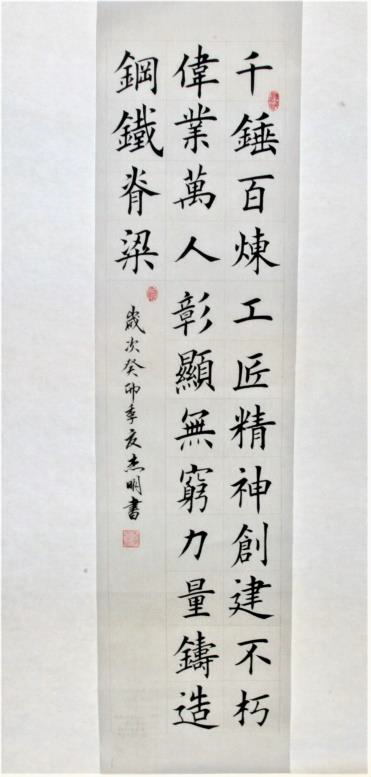 千錘百煉工匠精神創建不朽
偉業萬人彰顯無窮力量鑄造
鋼鐵脊梁
歲次癸卯季夏志明書